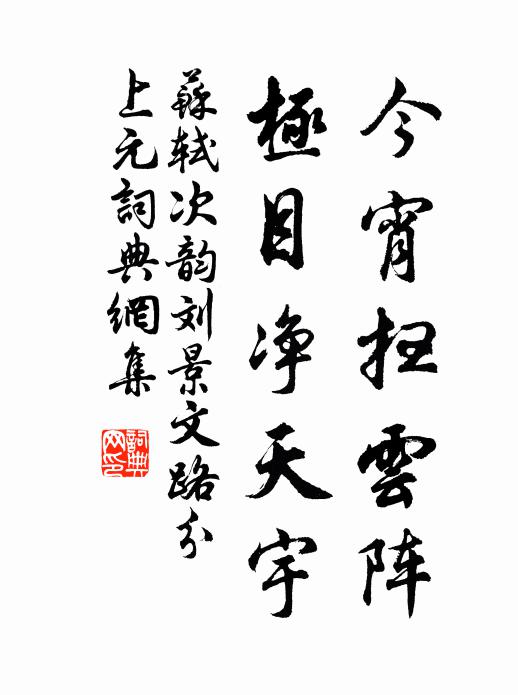 今宵扫雲阵
極目净天宇
蘇轼次韵刘景文路分
上元詞典網集
詞典
网印